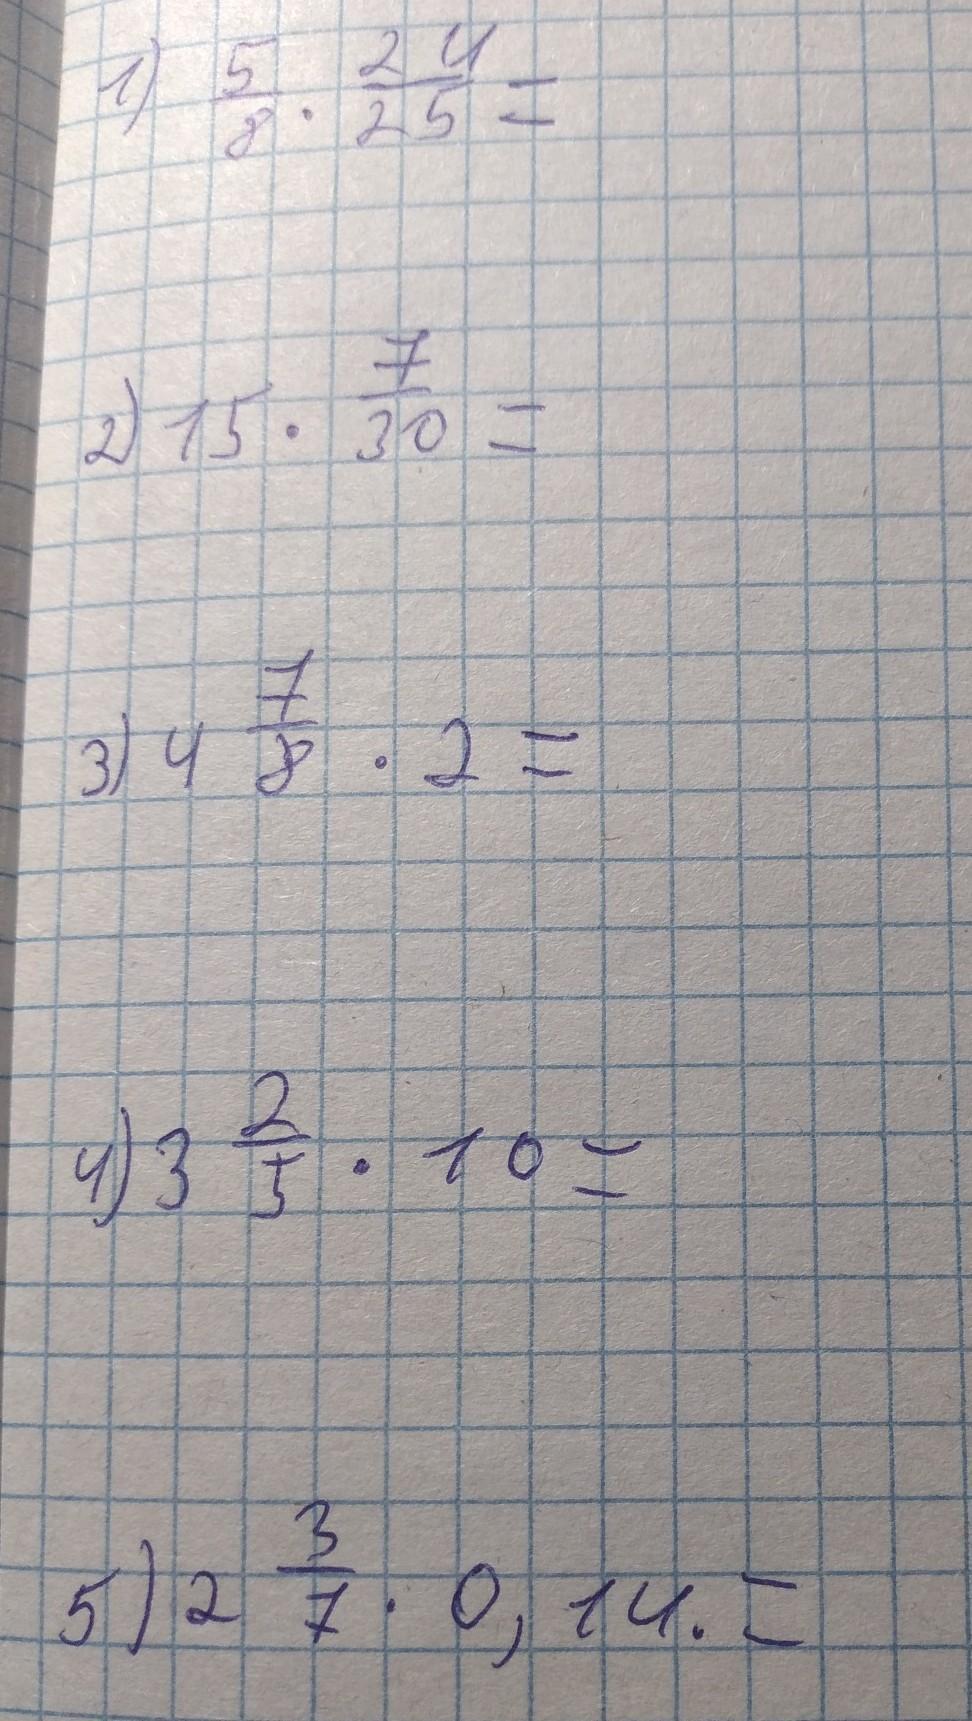 1) 5/8 · 24/25 =
2) 15 · 7/30 =
3) 4 7/8 · 2 =
4) 3 2/5 · 10 =
5) 2 3/7 · 0,14. =